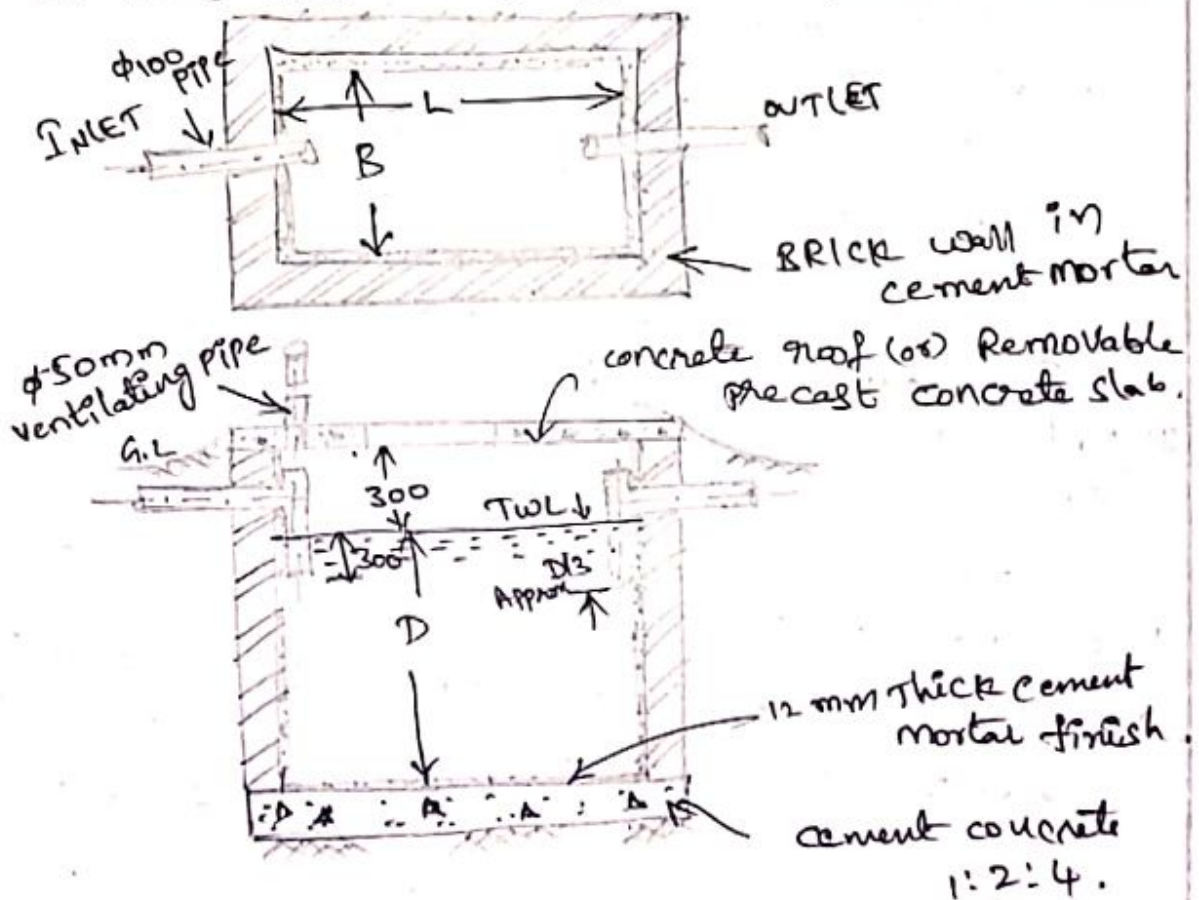 ϕ100
pipe
INLET
L
B
OUTLET
BRICK wall in
cement mortar
ϕ50mm
ventilating pipe
concrete roof (or) Removable
precast concrete slab.
G.L
300
TWL
300
D/3
Approx
D
12 mm Thick cement
mortar finish.
cement concrete
1:2:4.